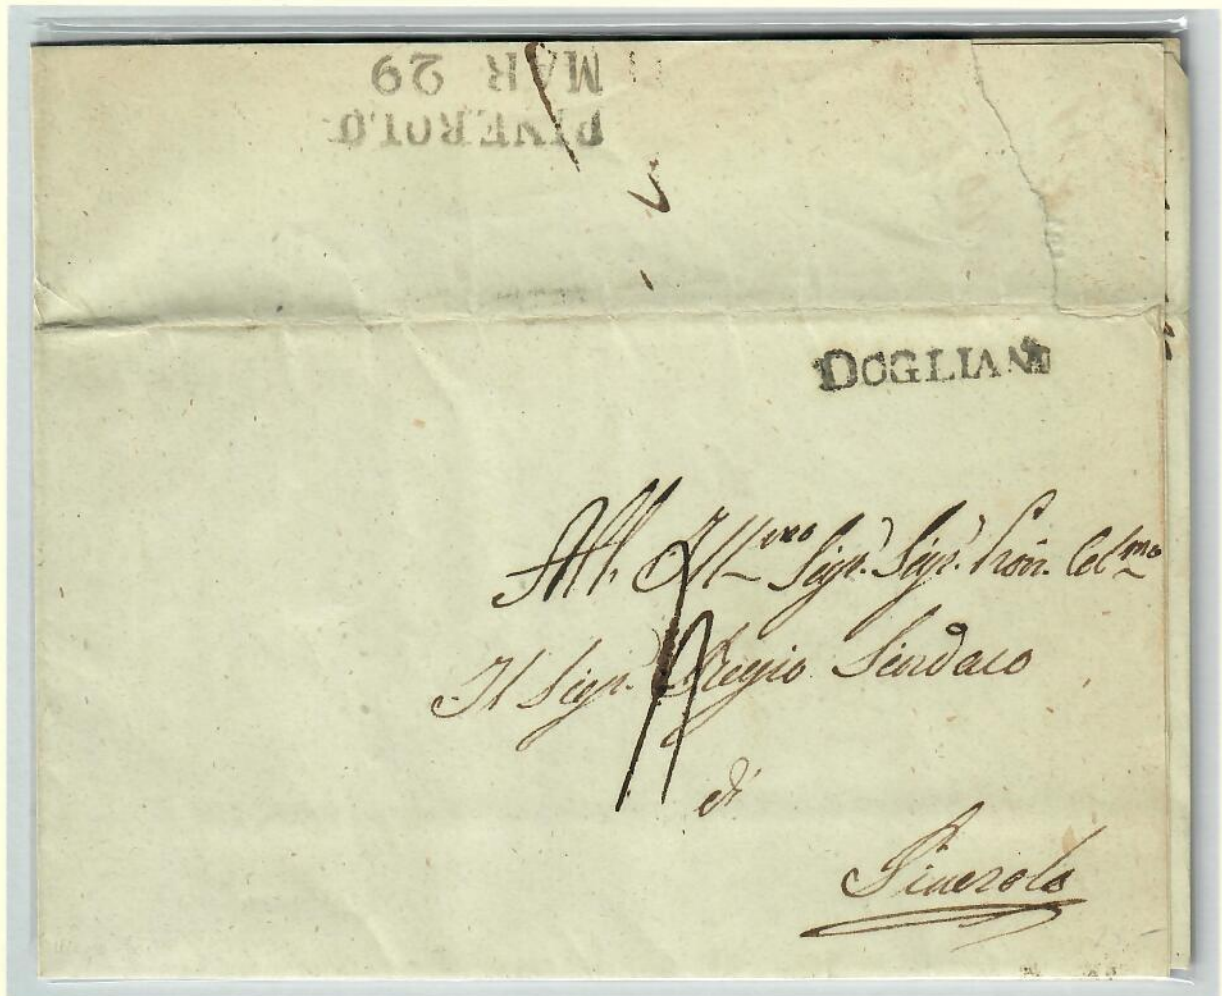 PINEROLO
MAR 29
DOGLIANI
All. Ill.mo Sigr. Sigr. Pron. Col.mo
Il Sigr. Regio Sindaco
di
Pinerolo